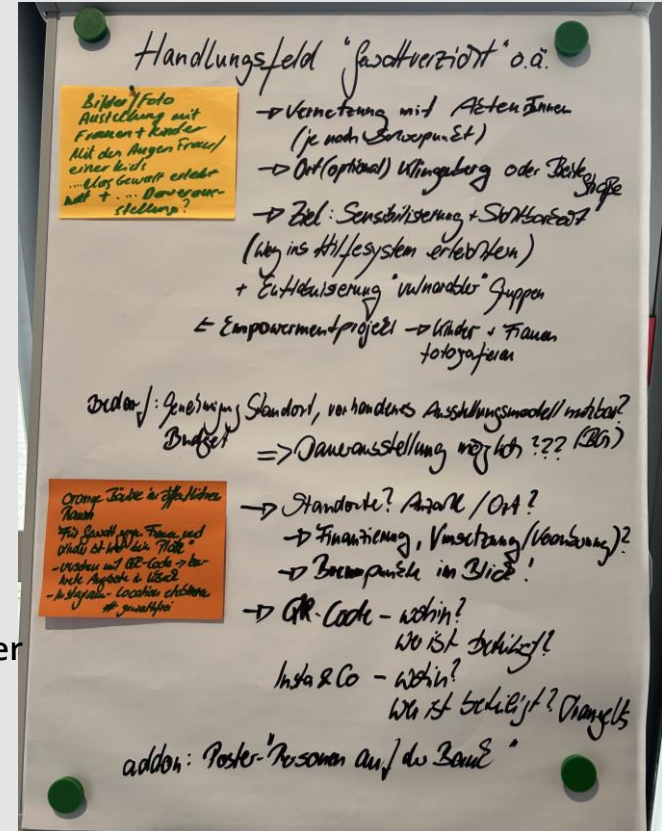 Handlungsfeld "Gewaltverzicht" o.ä.
Bilder/Foto
Ausstellung mit
Frauen + Kinder
Mit den Augen Frau/
einer Kids
... das Gewalt erlebt
hat + ... Dauerausstellung?
→ Vernetzung mit
(je nach Schwerpunkt)
→ Ort (optional) Klingenberg oder Breite Straße
→ Ziel: Sensibilisierung + Sichtbarkeit
(Weg ins Hilfesystem erleichtern)
+ "vulnerabler" Gruppen
Empowermentprojekt → Kinder + Frauen
fotografieren
Bedarf: Genehmigung Standort, vorhandenes Ausstellungsmodell nutzbar?
Budget
=> Dauerausstellung möglich ???
Orange Bänke im öffentlichen
Raum
"Für Gewalt gegen Frauen und
Kinder ist hier kein Platz"
- versehen mit QR-Code →
Angebote in Lübeck
- Instagram-Location
# gewaltfrei
→ Standorte? Anzahl / Ort?
→ Finanzierung, Umsetzung
→ Brennpunkte im Blick!
→ QR-Code - wohin?
Wer ist beteiligt?
Insta & Co - wohin?
Wer ist beteiligt?
addon: Poster-"Personen auf der Bank"
er